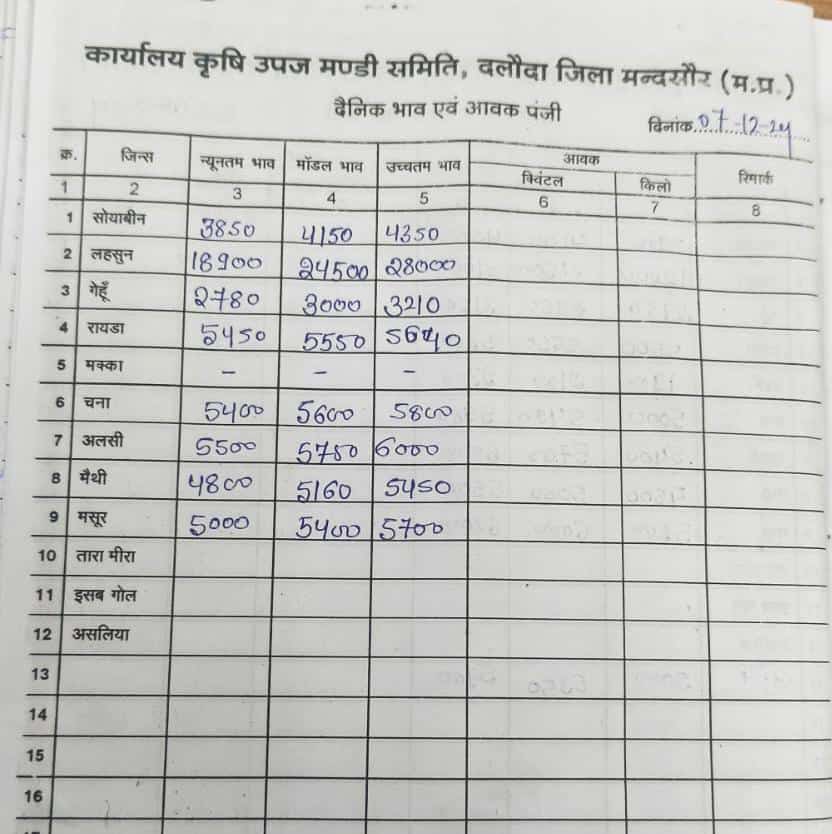 कार्यालय कृषि उपज मण्डी समिति, दलौदा जिला मन्दसौर (म.प्र.)
दैनिक भाव एवं आवक पंजी
दिनांक 07-12-24
क्र. जिन्स न्यूनतम भाव मॉडल भाव उच्चतम भाव आवक रिमार्क
क्विंटल किलो
1 2 3 4 5 6 7 8
1 सोयाबीन 3850 4150 4350
2 लहसुन 18900 24500 28000
3 गेहूँ 2780 3000 3210
4 रायडा 5450 5550 5640
5 मक्का - - -
6 चना 5400 5600 5800
7 अलसी 5500 5750 6000
8 मैथी 4800 5160 5450
9 मसूर 5000 5400 5700
10 तारा मीरा
11 इसब गोल
12 असलिया
13
14
15
16